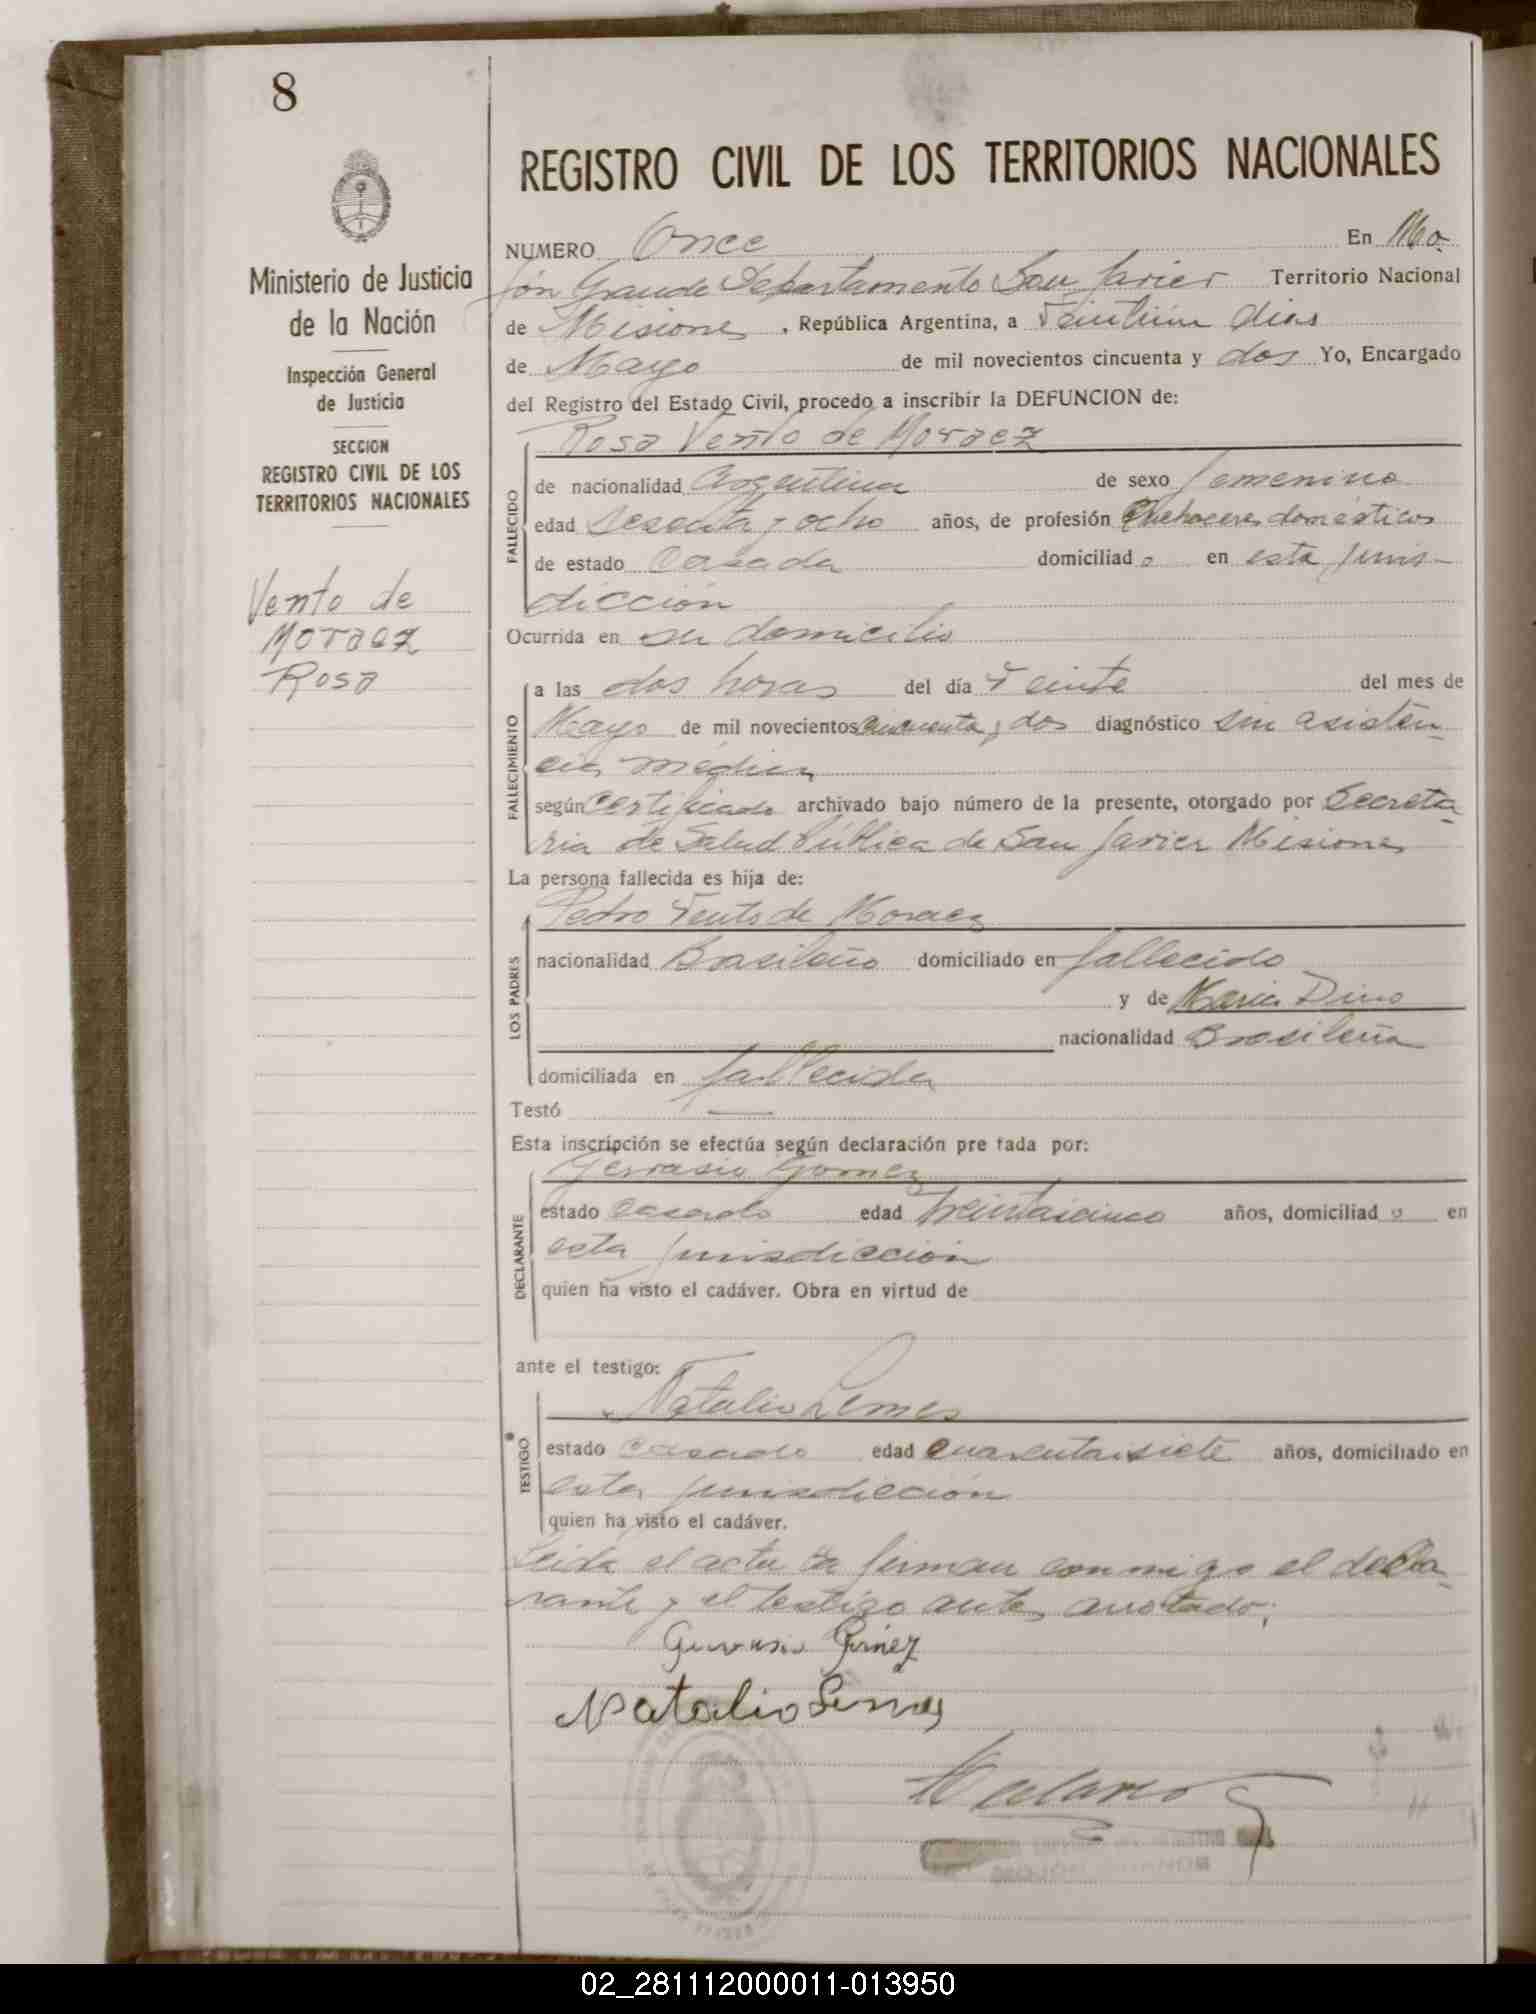 8
REGISTRO CIVIL DE LOS TERRITORIOS NACIONALES
Ministerio de Justicia
de la Nación
Inspección General
de Justicia
SECCION
REGISTRO CIVIL DE LOS
TERRITORIOS NACIONALES
Vento de
Moraez
Rosa
NUMERO Once En Mo
jón Grande Departamento San Javier Territorio Nacional
de Misiones, República Argentina, a Veintiun dias
de Mayo de mil novecientos cincuenta y dos Yo, Encargado
del Registro del Estado Civil, procedo a inscribir la DEFUNCION de:
Rosa Vento de Moraez
FALLECIDO
de nacionalidad Argentina de sexo femenino
edad Sesenta y ocho años, de profesión Quehaceres domésticos
de estado Casada domiciliad o en esta juris-
dicción
Ocurrida en su domicilio
FALLECIMIENTO
a las dos horas del día Veinte del mes de
Mayo de mil novecientos cincuenta y dos diagnóstico sin asisten-
cia médica
según Certificado archivado bajo número de la presente, otorgado por Secreta-
ria de Salud Pública de San Javier Misiones
La persona fallecida es hija de:
LOS PADRES
Pedro Vento de Moraez
nacionalidad Brasileño domiciliado en fallecido
y de Maria Dino
nacionalidad Brasileña
domiciliada en fallecida
Testó —
Esta inscripción se efectúa según declaración pre tada por:
DECLARANTE
Gervasio Gomez
estado casado edad treintaicinco años, domiciliad o en
esta jurisdicción
quien ha visto el cadáver. Obra en virtud de
ante el testigo:
TESTIGO
Natalio Lemes
estado casado edad cuarentaisiete años, domiciliado en
esta jurisdicción
quien ha visto el cadáver.
Leida el acta la firman conmigo el decla-
rante y el testigo antes anotado;
Gervasio Gómez
Natalio Lemes
02_281112000011-013950